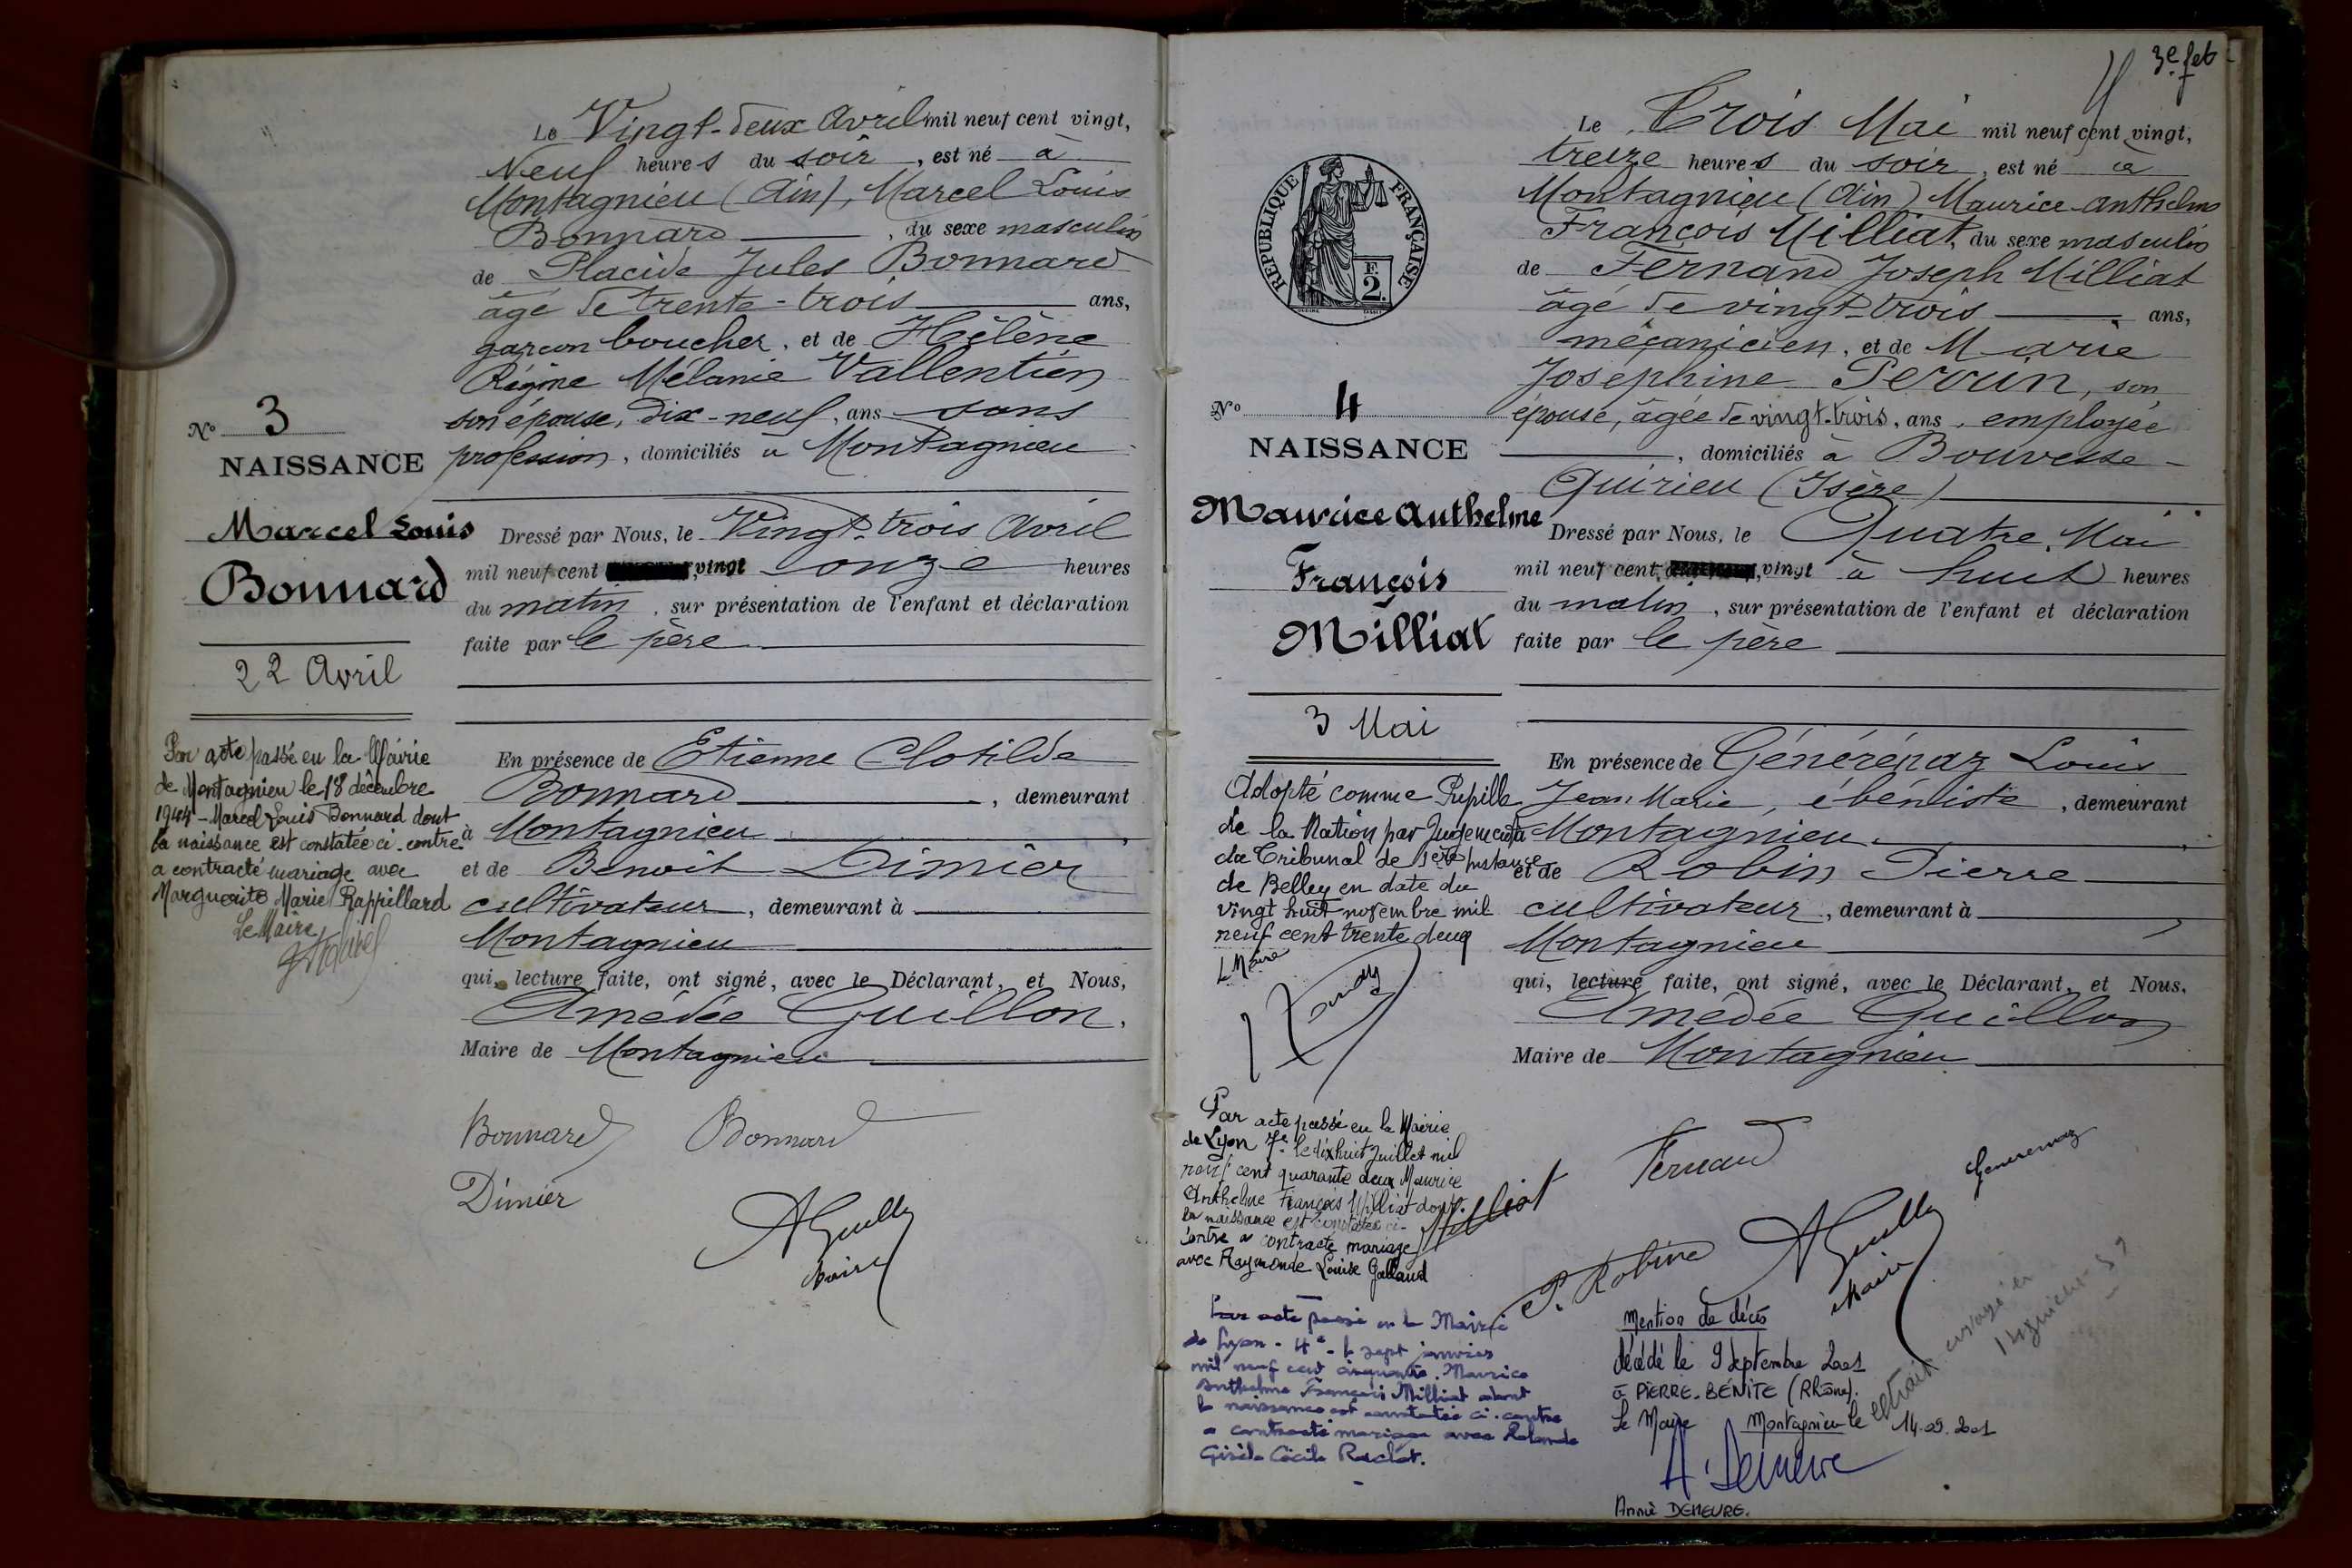 Le Vingt-deux Avril mil neuf cent vingt,
Neuf heures du soir, est né à
Montagnieu (Ain), Marcel Louis
Bonnard, du sexe masculin
de Placide Jules Bonnard
âgé de trente-trois ans,
garçon boucher, et de Hélène
Régine Mélanie Vallentien
son épouse, dix-neuf, ans sans
profession, domiciliés à Montagnieu
No 3
NAISSANCE
Marcel Louis
Bonnard
22 Avril
Dressé par Nous, le Vingt-trois Avril
mil neuf cent vingt onze heures
du matin, sur présentation de l'enfant et déclaration
faite par le père
Par acte passé en la Mairie
de Montagnieu le 18 décembre
1944 - Marcel Louis Bonnard dont
la naissance est constatée ci-contre
a contracté mariage avec
Marguerite Marie Rappillard
Le Maire
En présence de Etienne Clotilde
Bonnard, demeurant
à Montagnieu
et de Benoit Dimier
cultivateur, demeurant à
Montagnieu
qui, lecture faite, ont signé, avec le Déclarant, et Nous,
Amédée Guillon,
Maire de Montagnieu
Bonnard Bonnard
Dimier
AGuillon
Maire
3e fet
Le Trois Mai mil neuf cent vingt,
treize heures du soir, est né à
Montagnieu (Ain) Maurice Anthelme
François Milliat, du sexe masculin
de Fernand Joseph Milliat
âgé de vingt-trois ans,
mécanicien, et de Marie
Josephine Perrin, son
épouse, âgée de vingt-trois, ans, employée
, domiciliés à Bouvesse-
Quirieu (Isère)
REPUBLIQUE FRANÇAISE
F.
2.
No 4
NAISSANCE
Maurice Anthelme
François
Milliat
3 Mai
Dressé par Nous, le Quatre Mai
mil neuf cent vingt à huit heures
du matin, sur présentation de l'enfant et déclaration
faite par le père
Adopté comme Pupille
de la Nation par Jugement
du Tribunal de 1ère Instance
de Belley en date du
vingt huit novembre mil
neuf cent trente deux
Le Maire
En présence de Générénaz Louis
Jean Marie, ébéniste, demeurant
à Montagnieu
et de Robin Pierre
cultivateur, demeurant à
Montagnieu
qui, lecture faite, ont signé, avec le Déclarant, et Nous,
Amédée Guillon
Maire de Montagnieu
Par acte passé en la Mairie
de Lyon 7e le dix huit Juillet mil
neuf cent quarante deux Maurice
Anthelme François Milliat dont
la naissance est constatée ci-
contre a contracté mariage
avec Raymonde Louise Galland
Par acte passé en la Mairie
de Lyon - 4e - le sept janvier
mil neuf cent cinquante. Maurice
Anthelme François Milliat dont
la naissance est constatée ci-contre
a contracté mariage avec Rolande
Gisèle Cécile Raclot.
Milliat Fernand
Generenaz
P. Robin
AGuillon
Maire
Mention de décès
décédé le 9 Septembre 2001
à PIERRE-BÉNITE (Rhône).
Le Maire Montagnieu le 14.09.2001
A. Demeure
Annie DEMEURE.
extrait envoyé